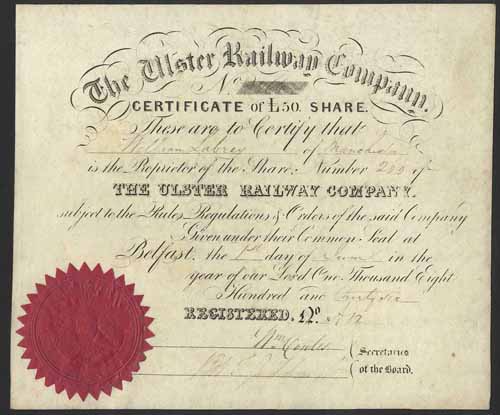 The Ulster Railway Company.
No
CERTIFICATE OF £50. SHARE.
These are to Certify that
William Labrey of
is the Proprietor of the Share, Number of
THE ULSTER RAILWAY COMPANY.
subject to the Rules, Regulations & Orders of the said Company
Given under their Common Seal at
Belfast, the day of June in the
year of our Lord One Thousand Eight
Hundred and
REGISTERED. No
Secretaries
of the Board.